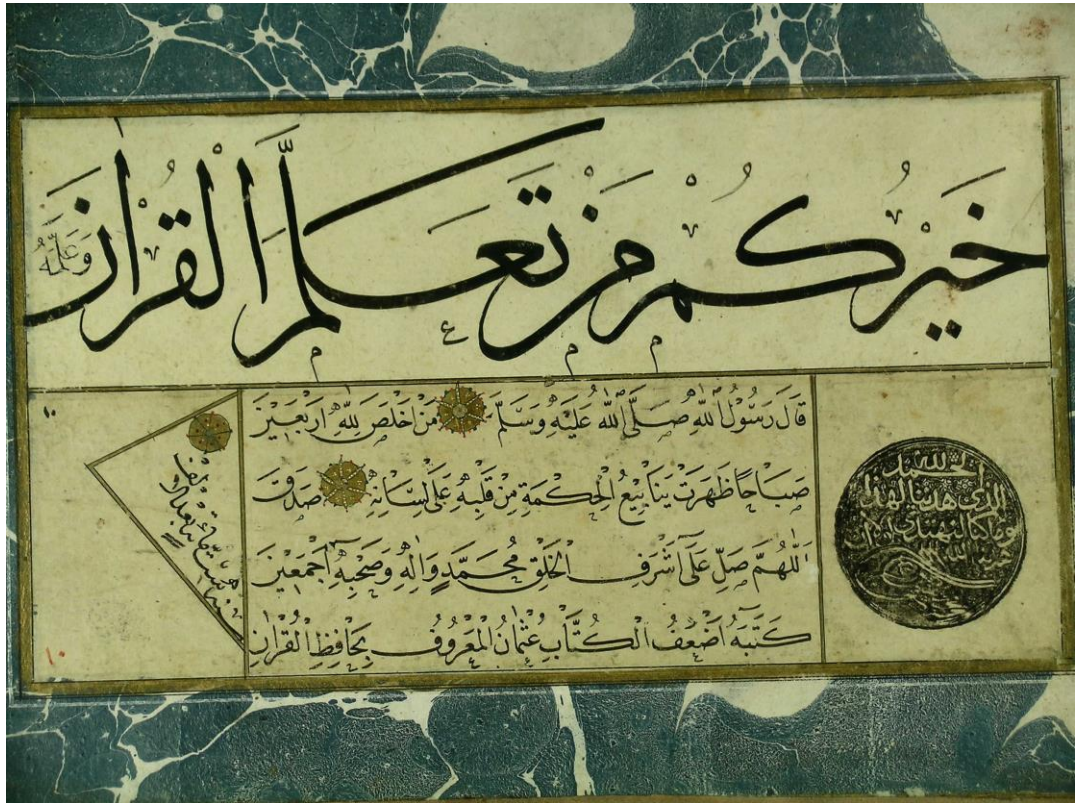 خَيْرُكُمْ مَنْ تَعَلَّمَ الْقُرْاٰنَ وَعَلَّمَهُ
قَالَ رَسُولُ اللّٰهِ صَلَّى اللّٰهُ عَلَيْهِ وَسَلَّمَ مَنْ اَخْلَصَ لِلّٰهِ اَرْبَعِينَ
صَبَاحًا ظَهَرَتْ يَنَابِيعُ الْحِكْمَةِ مِنْ قَلْبِهِ عَلٰى لِسَانِهِ صَدَقَ
اَللّٰهُمَّ صَلِّ عَلٰى اَشْرَفِ الْخَلْقِ مُحَمَّدٍ وَاٰلِهِ وَصَحْبِهِ اَجْمَعِينَ
كَتَبَهُ اَضْعَفُ الْكُتَّابِ عُثْمَانُ الْمَعْرُوفُ بِحَافِظِ الْقُرْاٰنِ
الحمد لله
الذي هدينا لهذا
وما كنا لنهتدي لولا ان
بعد الالف
١٠
١٠